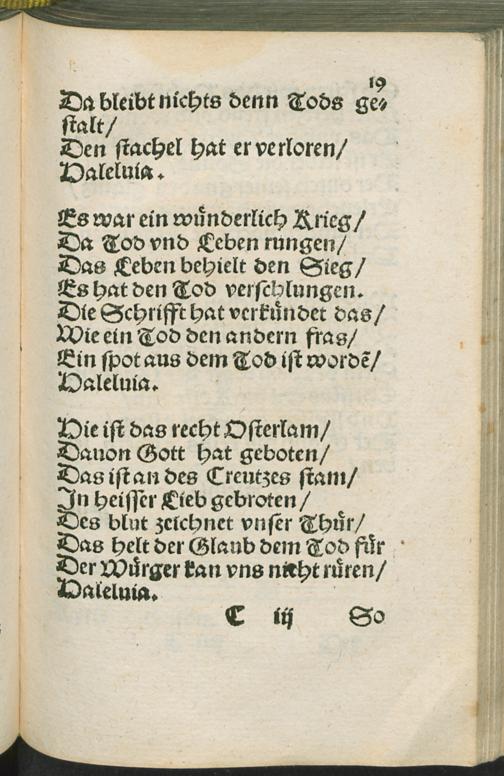 19
Da bleibt nichts denn Tods ge⸗
stalt/
Den stachel hat er verloren/
Haleluia.
Es war ein wünderlich Krieg/
Da Tod vnd Leben rungen/
Das Leben behielt den Sieg/
Es hat den Tod verschlungen.
Die Schrifft hat verkündet das/
Wie ein Tod den andern fras/
Ein spot aus dem Tod ist wordē/
Haleluia.
Hie ist das recht Osterlam/
Dauon Gott hat geboten/
Das ist an des Creutzes stam/
In heisser Lieb gebroten/
Des blut zeichnet vnser Thür/
Das helt der Glaub dem Tod für
Der Würger kan vns nicht rüren/
Haleluia.
C iij So